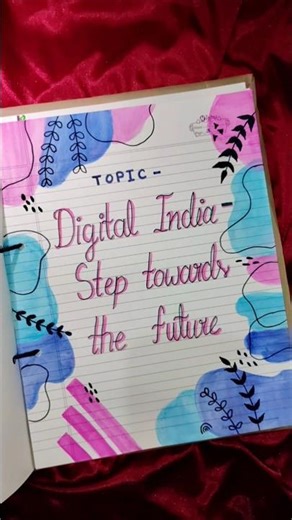 TOPIC -
Digital India -
Step towards
the future